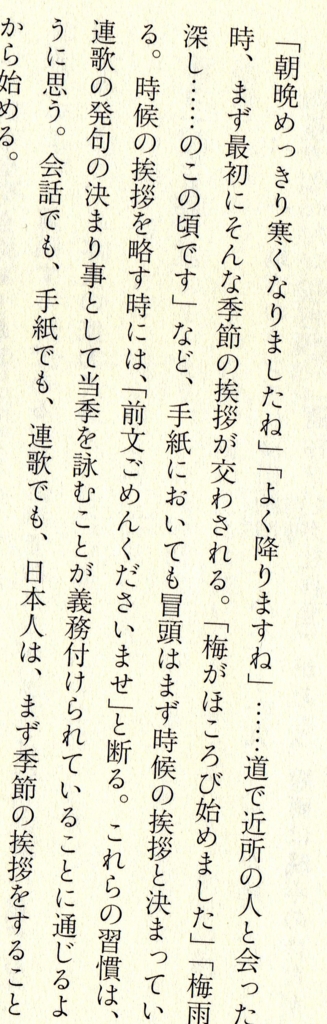 「朝晩めっきり寒くなりましたね」「よく降りますね」……道で近所の人と会った
時、まず最初にそんな季節の挨拶が交わされる。「梅がほころび始めました」「梅雨
深し……のこの頃です」など、手紙においても冒頭はまず時候の挨拶と決まってい
る。時候の挨拶を略す時には、「前文ごめんくださいませ」と断る。これらの習慣は、
連歌の発句の決まり事として当季を詠むことが義務付けられていることに通じるよ
うに思う。会話でも、手紙でも、連歌でも、日本人は、まず季節の挨拶をすること
から始める。